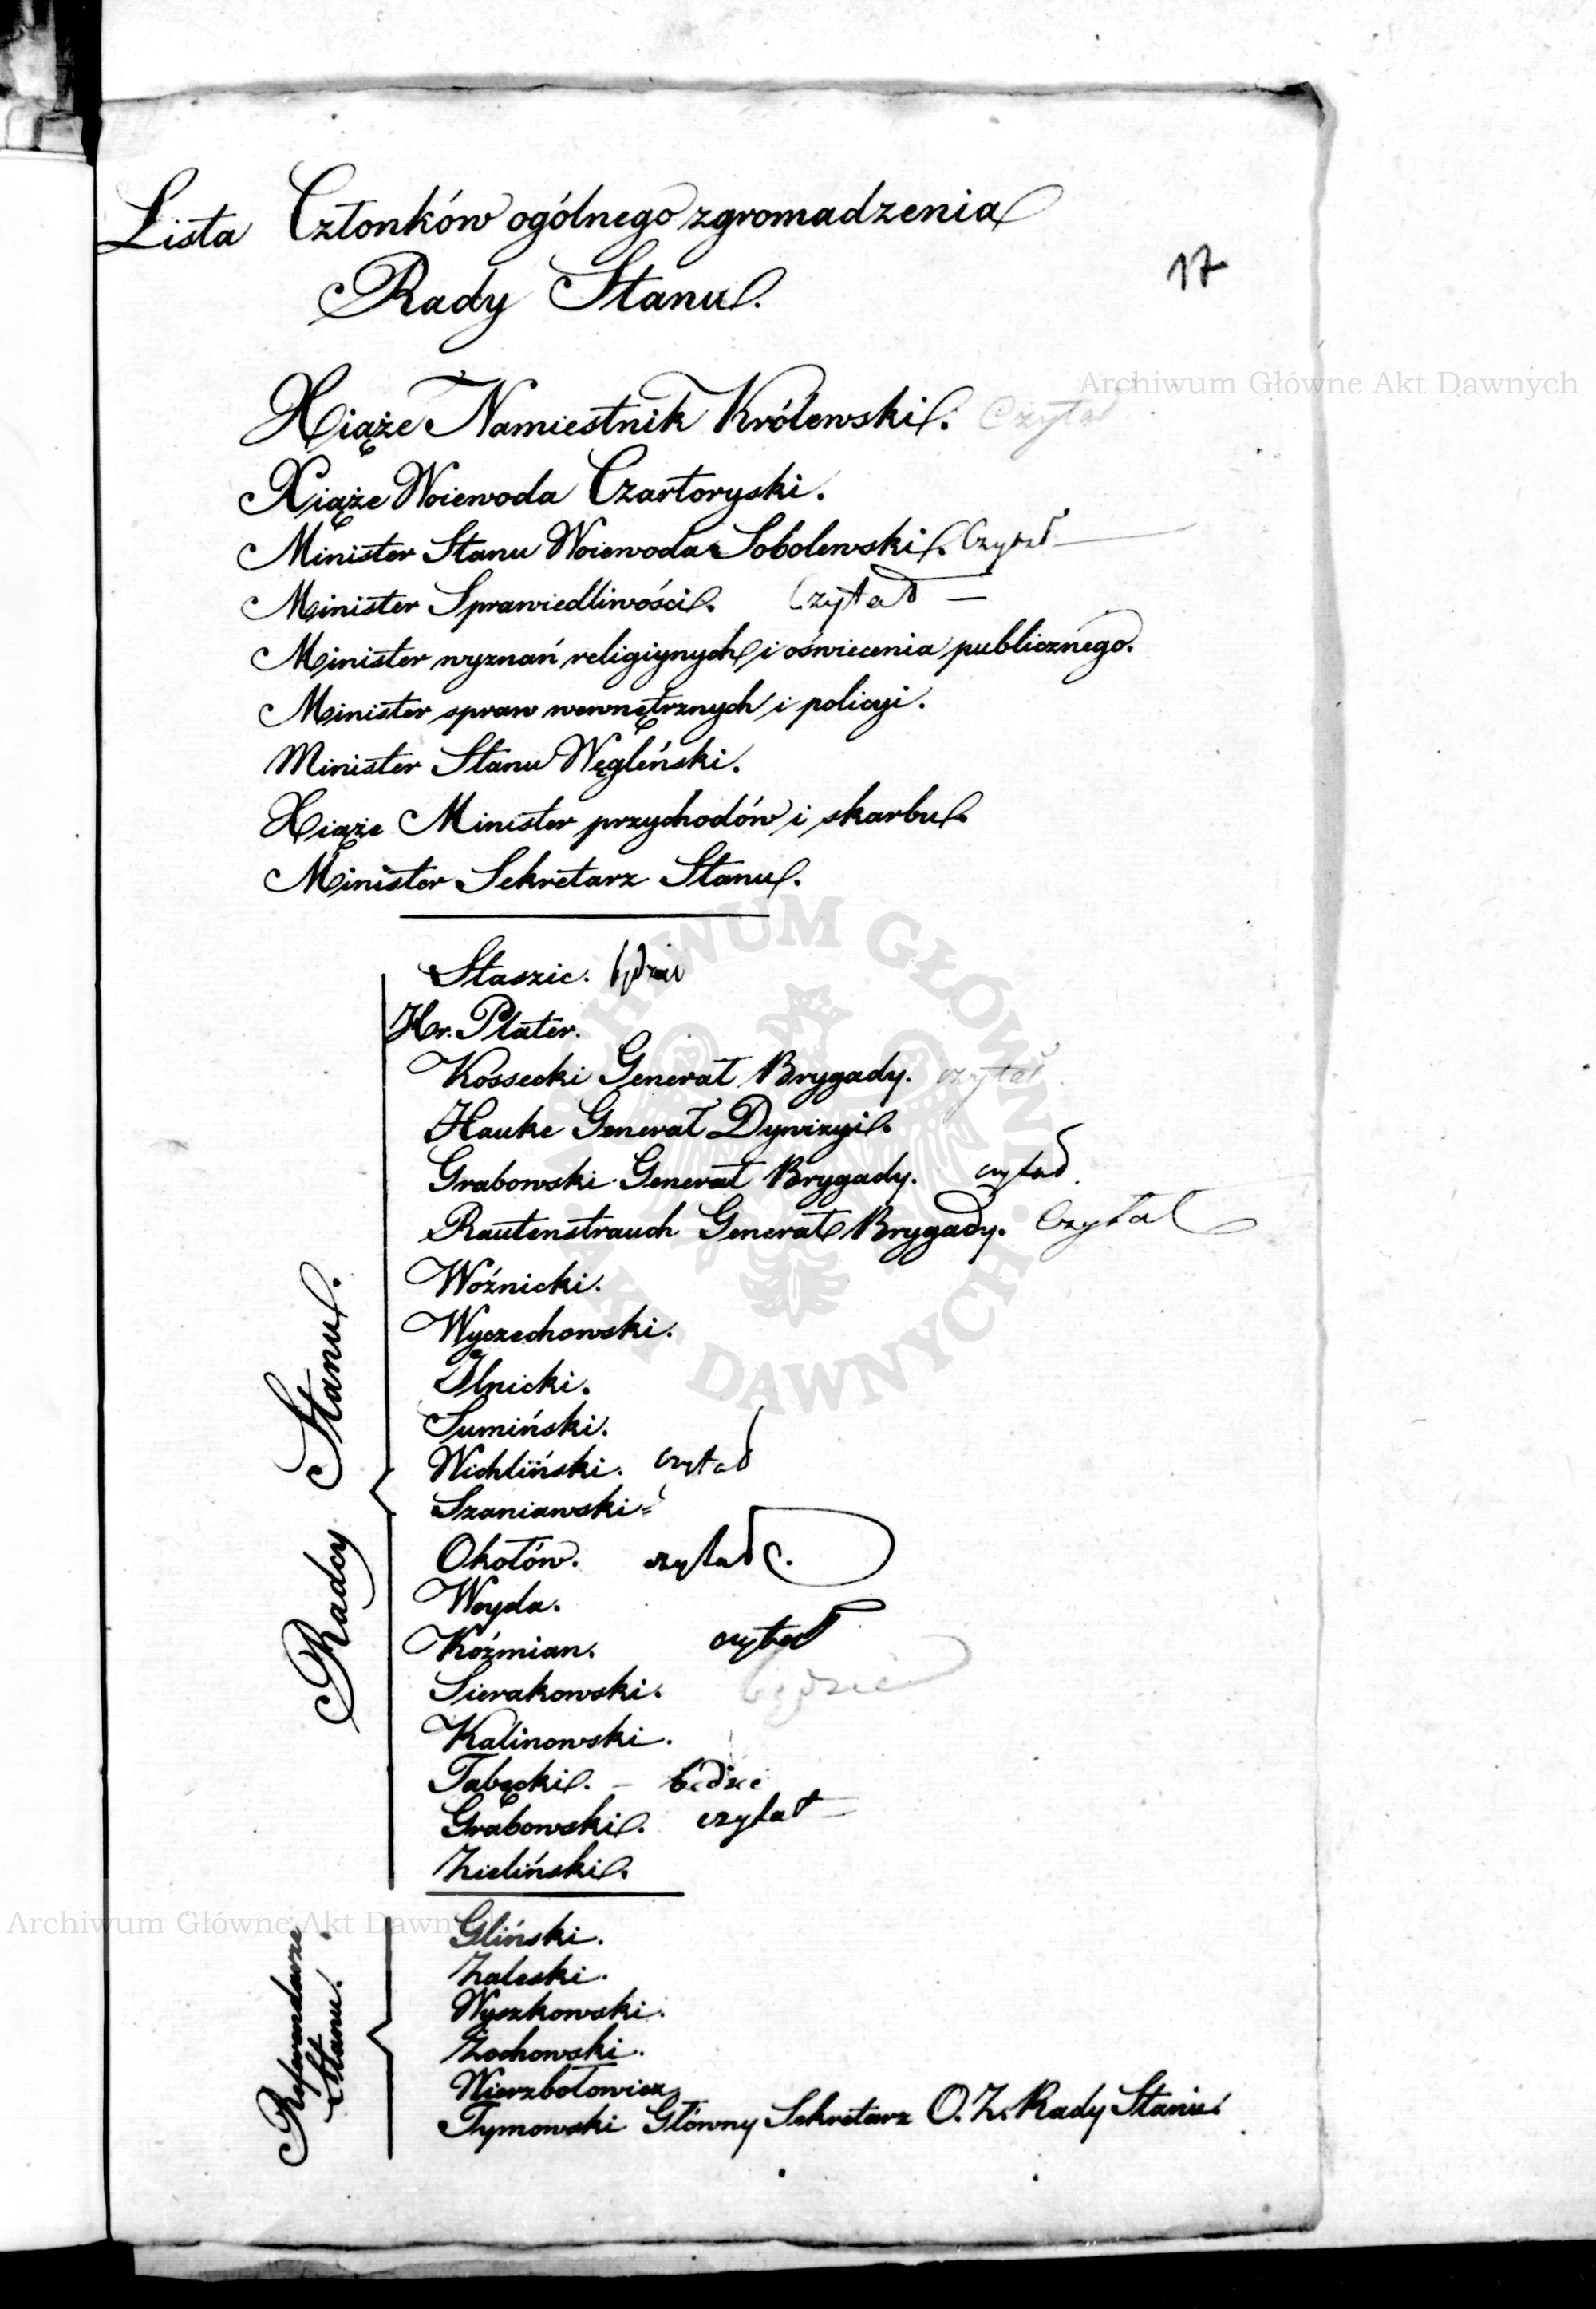 Lista Członków ogólnego zgromadzenia
Rady Stanu.
17
Archiwum Główne Akt Dawnych
Xiąże Namiestnik Królewski. Czytał
Xiąże Woiewoda Czartoryski.
Minister Stanu Woiewoda Sobolewski. Czytał
Minister Sprawiedliwości. Czytał
Minister wyznań religiynych i oświecenia publicznego.
Minister spraw wewnętrznych i policyi.
Minister Stanu Węgleński.
Xiąże Minister przychodów i skarbu.
Minister Sekretarz Stanu.
ARCHIWUM GŁÓWNE AKT DAWNYCH
Radcy Stanu.
Staszic. będzie
Hr. Plater.
Kossecki Generał Brygady. czytał
Hauke Generał Dywizyi.
Grabowski Generał Brygady. czytał
Rautenstrauch Generał Brygady. Czytał
Woźnicki.
Wyczechowski.
Ilnicki.
Sumiński.
Wichliński. czytał
Szaniawski
Okołów. czytał
Woyda.
Koźmian. czytał
Sierakowski. będzie
Kalinowski.
Tabęcki. – będzie
Grabowski. czytał
Zieliński.
Archiwum Główne Akt Dawnych
Referendarze
Stanu.
Gliński.
Zaleski.
Wyszkowski.
Żochowski.
Wierzbołowicz
Tymowski Główny Sekretarz O. Z. Rady Stanu.